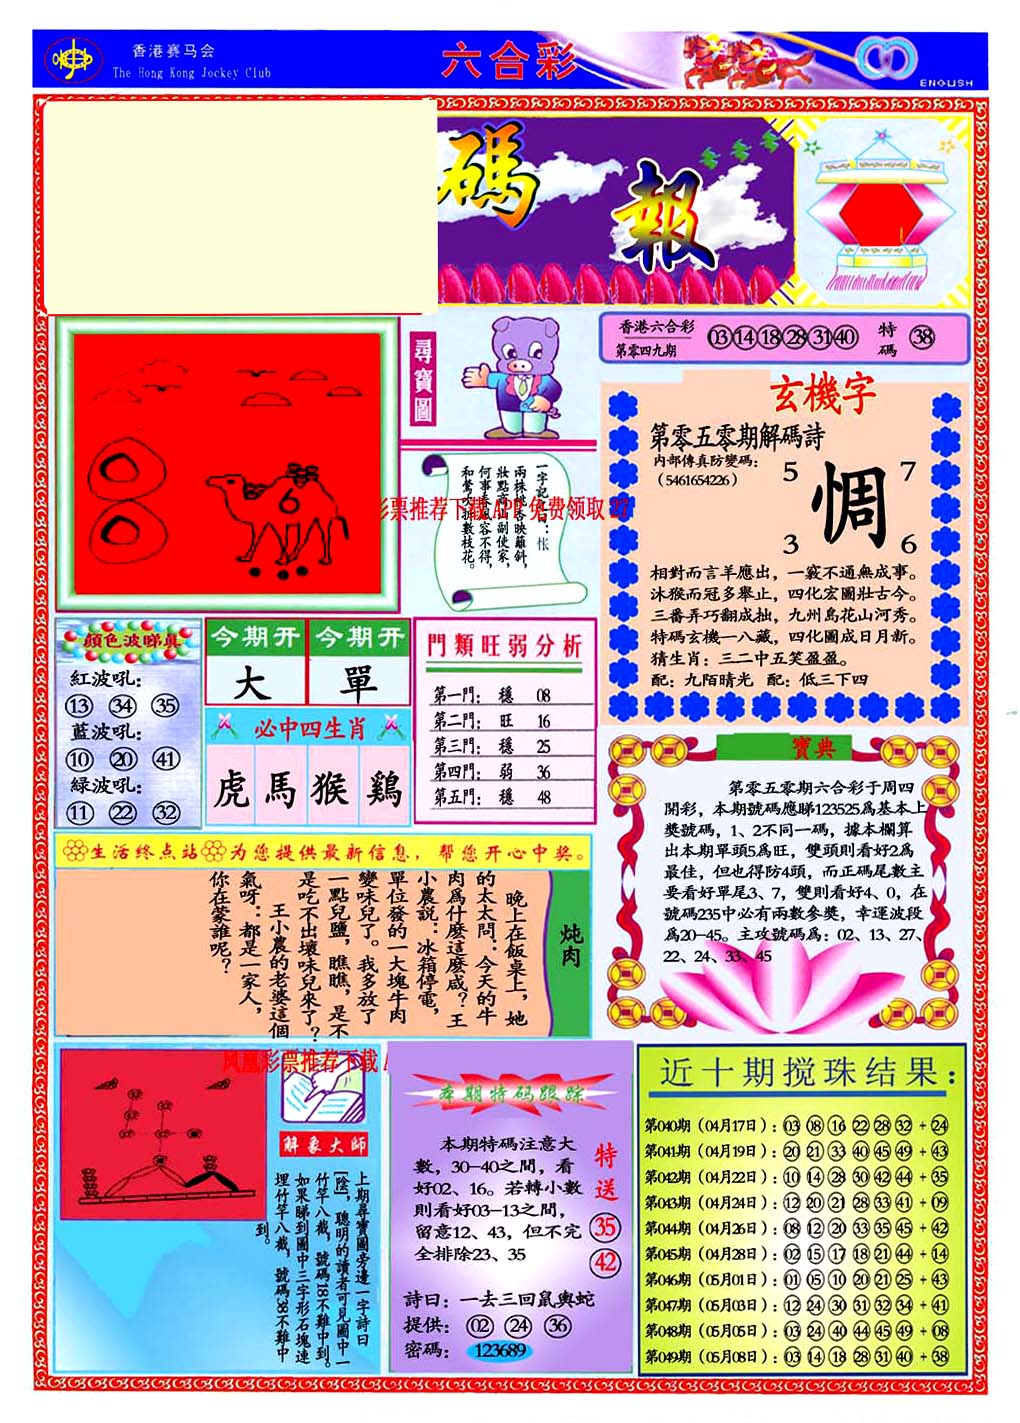 香港赛马会
The Hong Kong Jockey Club
六合彩
ENGLISH
碼報
尋寶圖
6
一字記之曰：悵
兩株桃杏映籬斜，
妝點商山副使家，
何事春風容不得，
和鶯吹折數枝花。
彩票推荐下载 APP 免费领取 27
香港六合彩
第零四九期
03 14 18 28 31 40
特碼
38
玄機字
第零五零期解碼詩
内部傳真防變碼：
（5461654226）
5 7
惆
3 6
相對而言羊應出，一竅不通無成事。
沐猴而冠多舉止，四化宏圖壯古今。
三番弄巧翻成拙，九州烏花山河秀。
特碼玄機一八藏，四化圖成日月新。
猜生肖：三二中五笑盈盈。
配：九陌晴光 配：低三下四
顔色波睇真
紅波吼：
13 34 35
藍波吼：
10 20 41
緑波吼：
11 22 32
今期开 今期开
大 單
必中四生肖
虎 馬 猴 鷄
門類旺弱分析
第一門： 穩 08
第二門： 旺 16
第三門： 穩 25
第四門： 弱 36
第五門： 穩 48
寶典
第零五零期六合彩于周四
開彩，本期號碼應睇123525爲基本上
獎號碼，1、2不同一碼，據本欄算
出本期單頭5爲旺，雙頭則看好2爲
最佳，但也得防4頭，而正碼尾數主
要看好單尾3、7，雙則看好4、0，在
號碼235中必有兩數參獎，幸運波段
爲20-45。主攻號碼爲：02、13、27、
22、24、33、45
生活终点站 为您提供最新信息，帮您开心中奖。
炖肉
晚上在飯桌上，她
的太太問：今天的牛
肉爲什麽這麽咸？王
小農説：冰箱停電，
單位發的一大塊牛肉
變味兒了。我多放了
一點兒鹽，瞧瞧，是不
是吃不出壞味兒來了？
王小農的老婆這個
氣呀：都是一家人，
你在蒙誰呢？
凤凰彩票推荐下载
解象大師
上期尋寶圖旁邊一字詩曰
［陰］，聰明的讀者可見圖中一
竹竿八截，號碼18不難中到。
如果睇到圖中三字形石塊連
埋竹竿八截，號碼38不難中
到。
本期特码跟踪
本期特碼注意大
數，30-40之間，看
好02、16。若轉小數
則看好03-13之間，
留意12、43，但不完
全排除23、35
特送
35
42
詩曰：一去三回鼠與蛇
提供： 02 24 36
密碼： 123689
近十期搅珠结果：
第040期（04月17日）：03 08 16 22 28 32 + 24
第041期（04月19日）：20 21 33 40 45 49 + 43
第042期（04月22日）：10 14 28 30 42 44 + 35
第043期（04月24日）：12 20 21 28 33 41 + 09
第044期（04月26日）：08 12 20 33 35 45 + 42
第045期（04月28日）：02 15 17 18 21 44 + 14
第046期（05月01日）：01 05 10 20 21 25 + 43
第047期（05月03日）：12 24 30 31 32 34 + 41
第048期（05月05日）：03 24 40 44 45 49 + 08
第049期（05月08日）：03 14 18 28 31 40 + 38